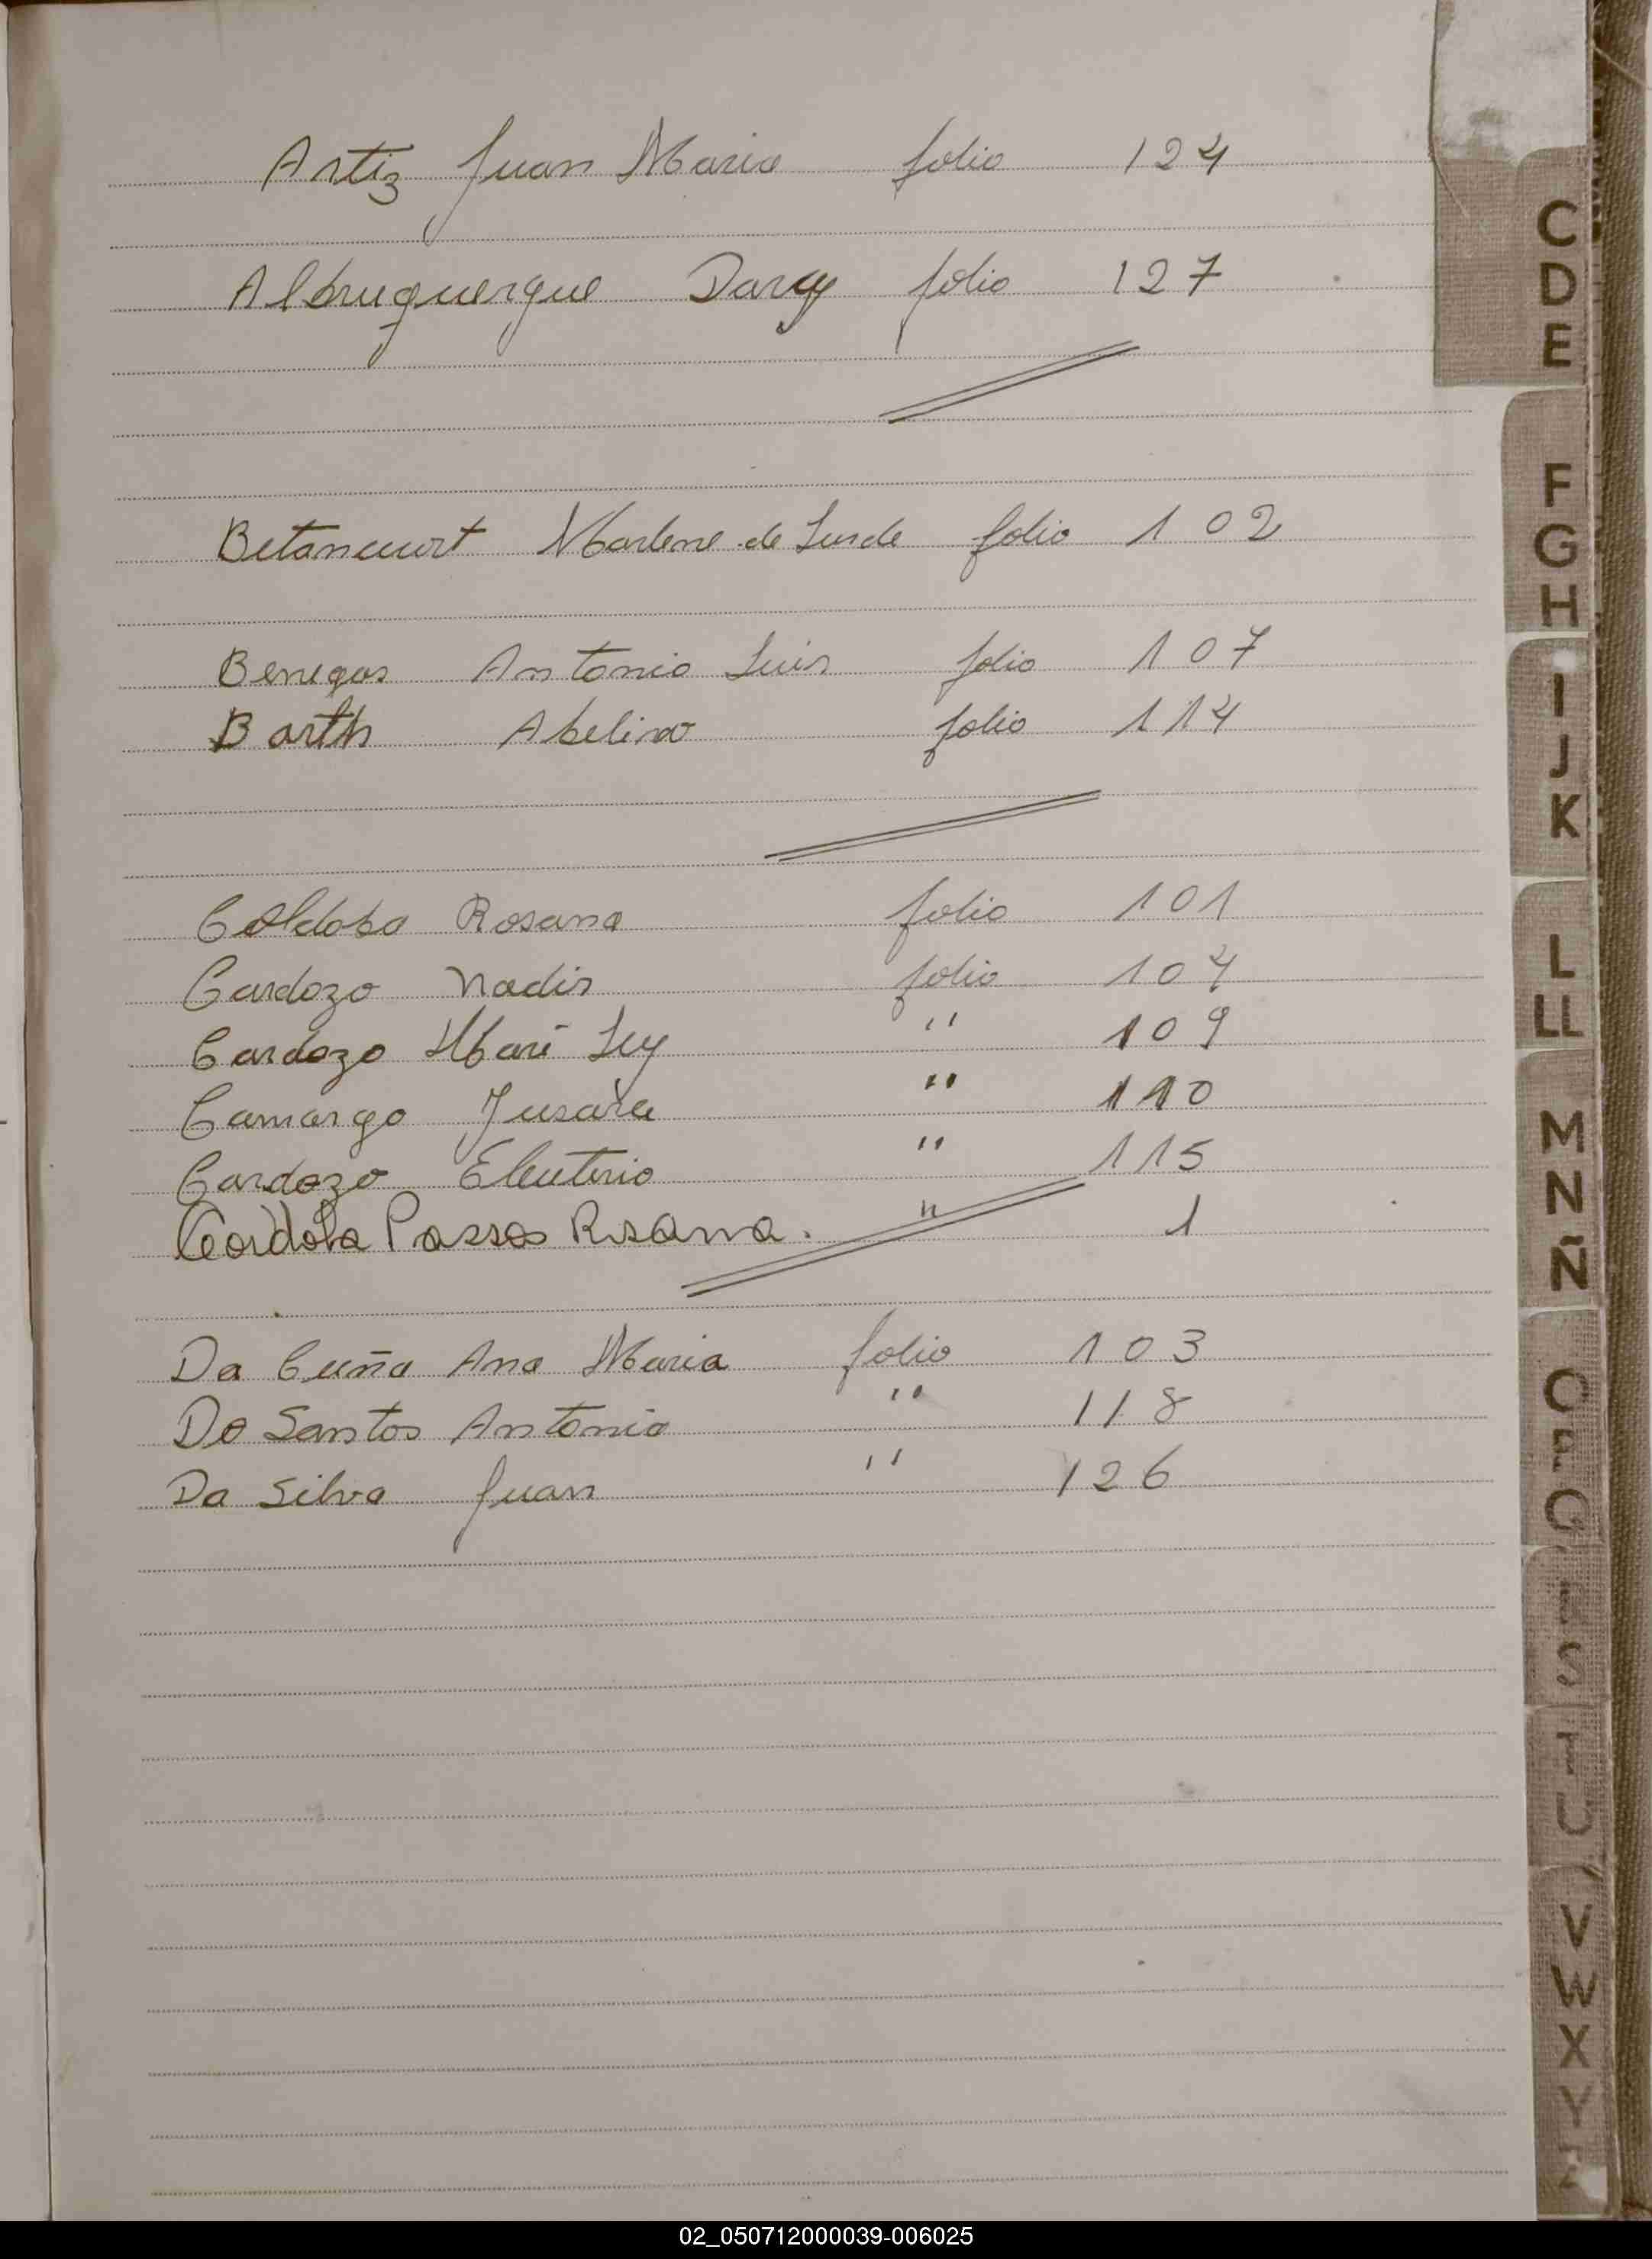 Artiz Juan Maria folio 124
Albruquerque Darcy folio 127
Betancurt Marlene de Lurde folio 102
Benegas Antonio Luis folio 107
Barth Abelino folio 114
Coldoba Rosana folio 101
Cardozo Nadir folio 104
Cardozo Mari Ley " 109
Camargo Jusara " 110
Cardozo Eleuterio " 115
Cordoba Passos Rosana. " 1
Da Cuña Ana Maria folio 103
Do Santos Antonio " 118
Da Silva Juan " 126
C
D
E
F
G
H
I
J
K
L
LL
M
N
Ñ
O
P
Q
R
S
T
U
V
W
X
Y
Z
02_050712000039-006025